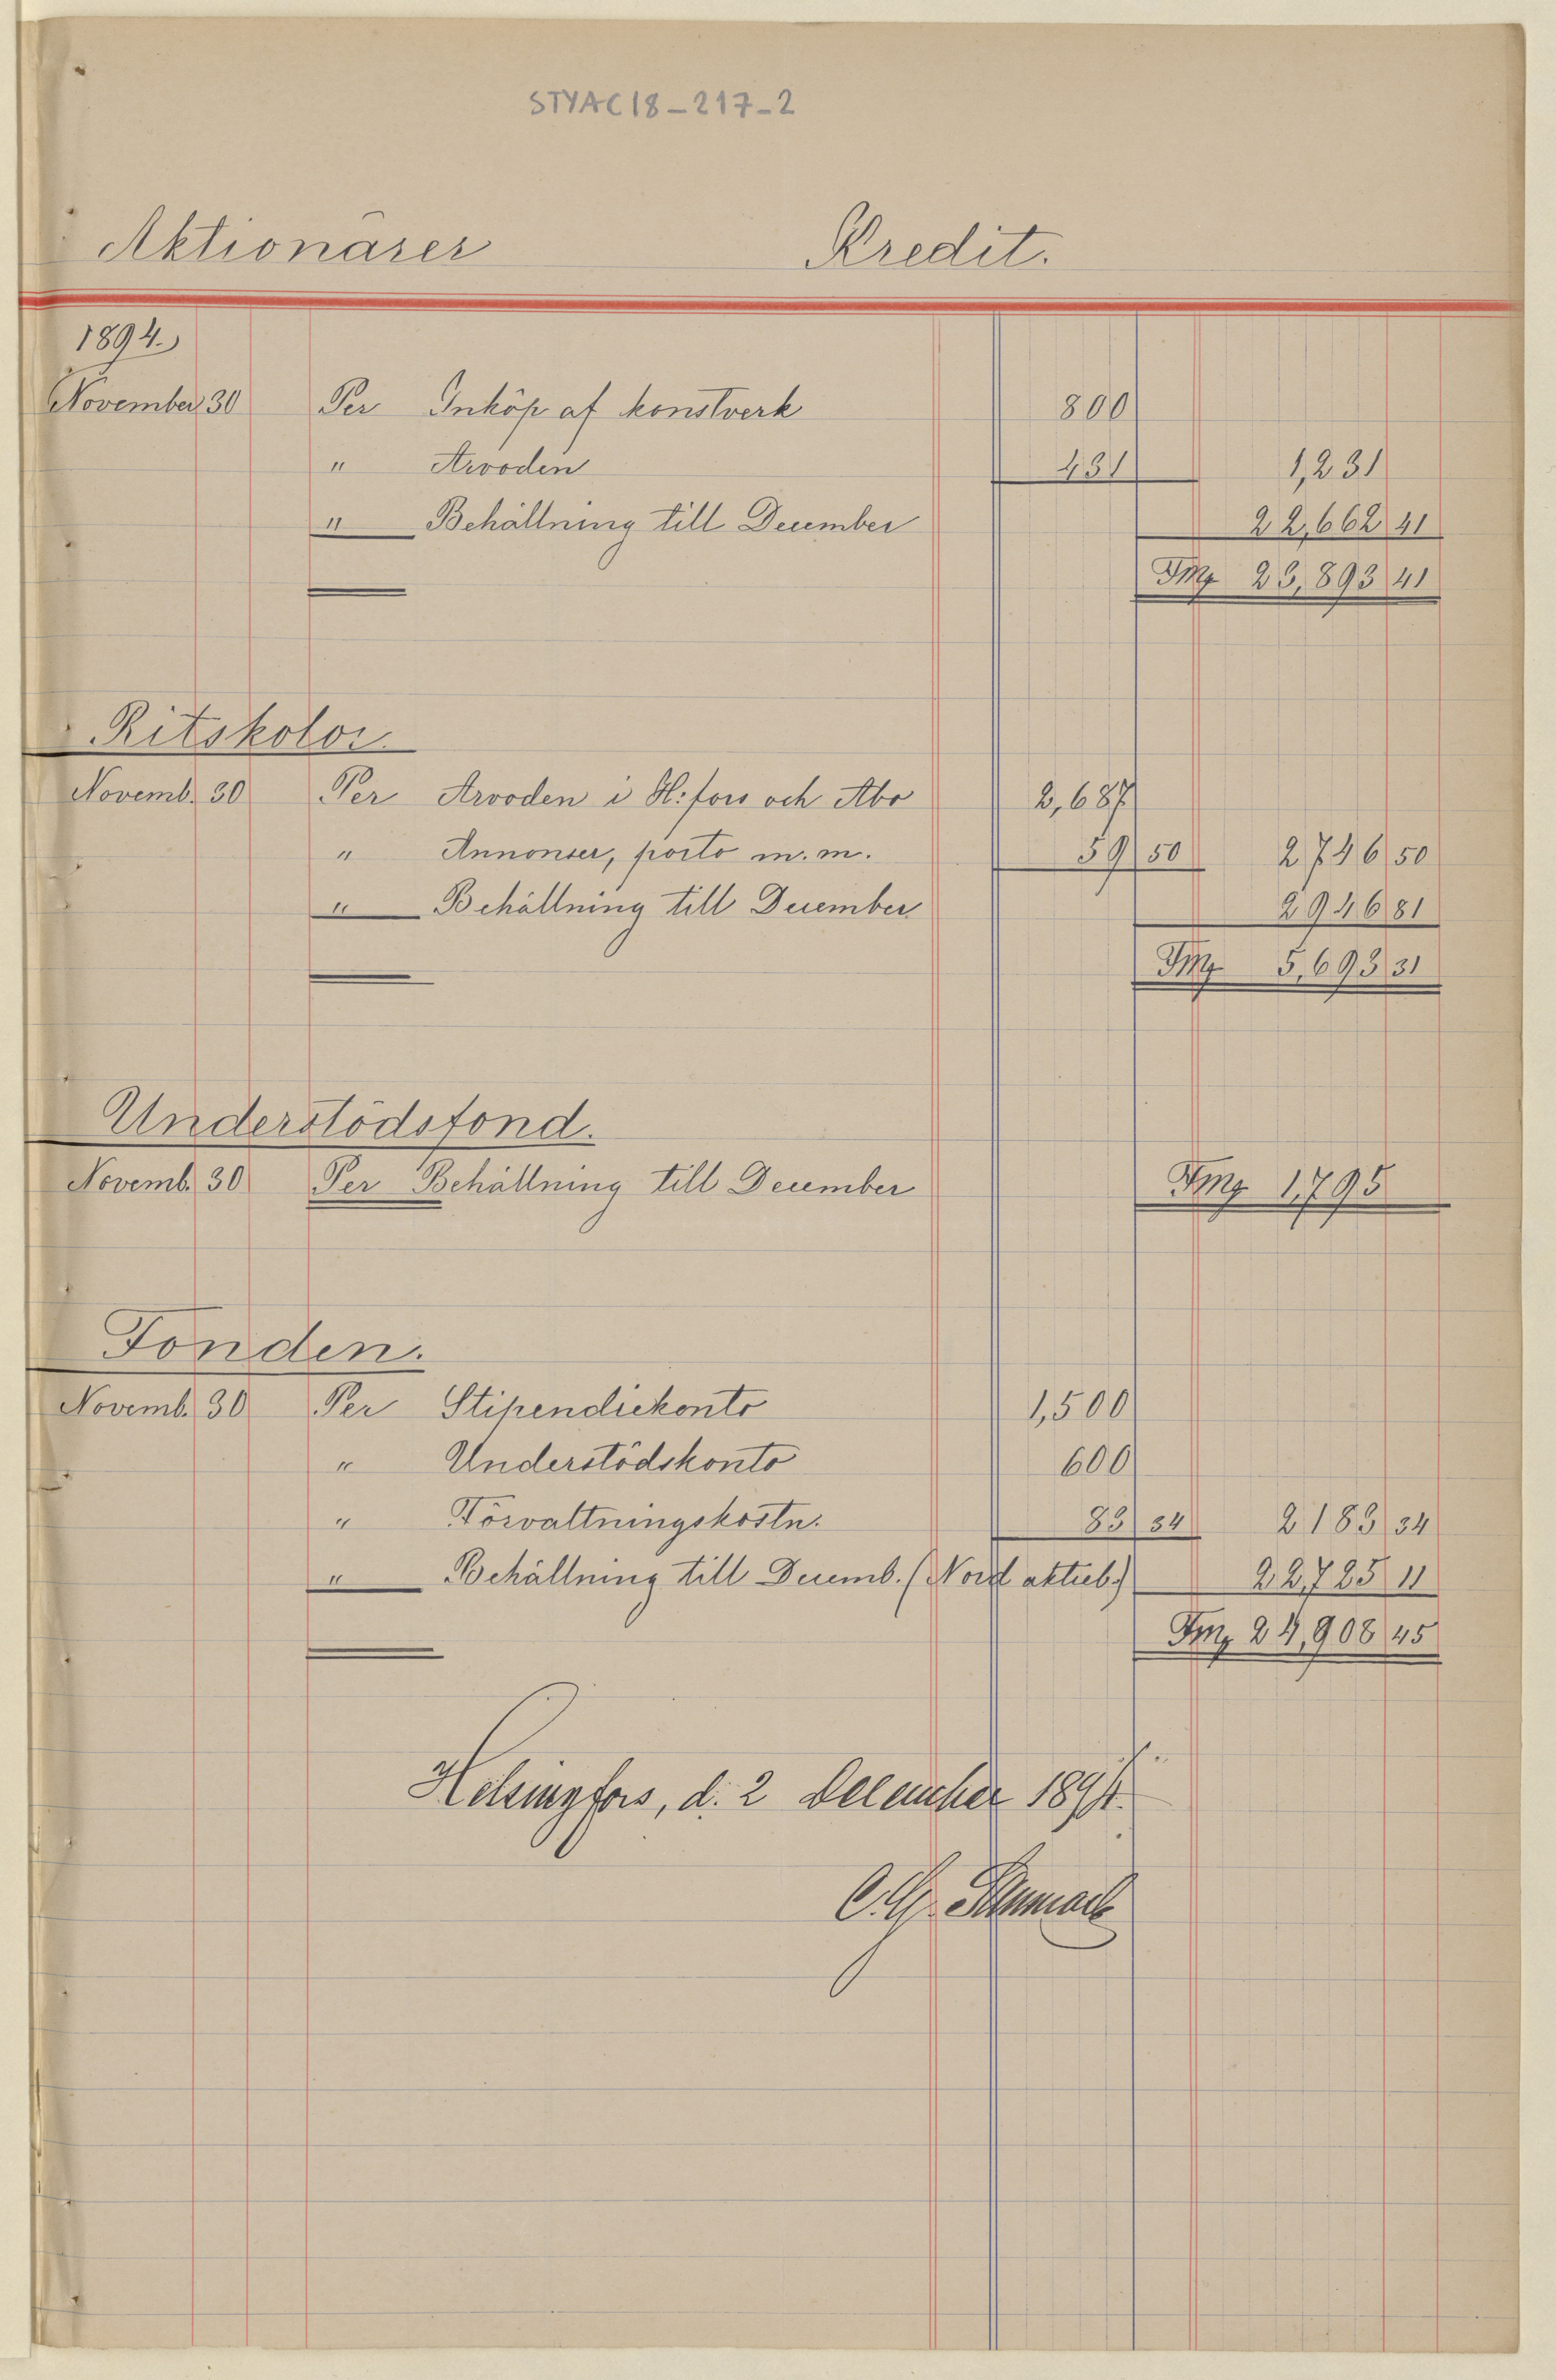 STYAC18-217-2
Aktionärer Kredit.
1894.
November 30 Per Inköp af konstverk 800
" Arvoden 431 1,231
" Behållning till December 22,662 41
Fmk 23,893 41
Ritskolor.
Novemb. 30 Per Arvoden i H:fors och Åbo 2,687
" Annonser, porto m.m. 59 50 2746 50
" Behållning till December 2946 81
Fmk 5,693 31
Understödsfond.
Novemb. 30 Per Behållning till December Fmk 1,795
Fonden.
Novemb. 30 Per Stipendiekonto 1,500
" Understödskonto 600
" Förvaltningskostn. 83 34 2183 34
" Behållning till Decemb. (Nord aktieb.) 22,725 11
Fmk 24,908 45
Helsingfors, d. 2 December 1894.